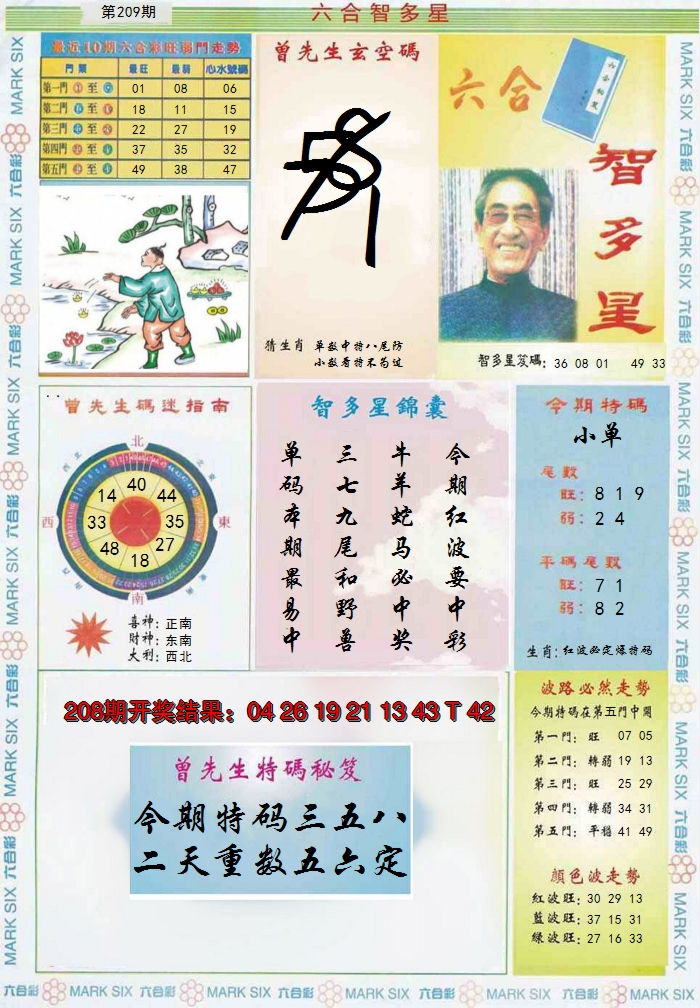 第209期
六合智多星
最近10期六合彩旺弱門走勢
門類 最旺 最弱 心水號碼
第一門 至 01 08 06
第二門 至 18 11 15
第三門 至 22 27 19
第四門 至 37 35 32
第五門 至 49 38 47
曾先生玄空碼
猜生肖 单数中特八尾防
小数看特不为过
六合
智多星
智多星笈碼: 36 08 01 49 33
曾先生碼迷指南
北
西
東
南
40
14 44
33 35
48 27
18
喜神: 正南
財神: 东南
大利: 西北
智多星錦囊
今期红波要中彩
牛羊蛇马必中奖
三七九尾和野兽
单码本期最易中
今期特碼
小单
尾數
旺: 8 1 9
弱: 2 4
平碼尾數
旺: 7 1
弱: 8 2
生肖: 红波必定爆特码
208期开奖结果: 04 26 19 21 13 43 T 42
曾先生特碼秘笈
今期特码三五八
二天重数五六定
波路必然走勢
今期特碼在第五門中開
第一門: 旺 07 05
第二門: 轉弱 19 13
第三門: 旺 25 29
第四門: 轉弱 34 31
第五門: 平穩 41 49
顏色波走勢
紅波旺: 30 29 13
藍波旺: 37 15 31
綠波旺: 27 16 33
MARK SIX 六合彩 MARK SIX 六合彩 MARK SIX 六合彩 MARK SIX 六合彩 MARK SIX